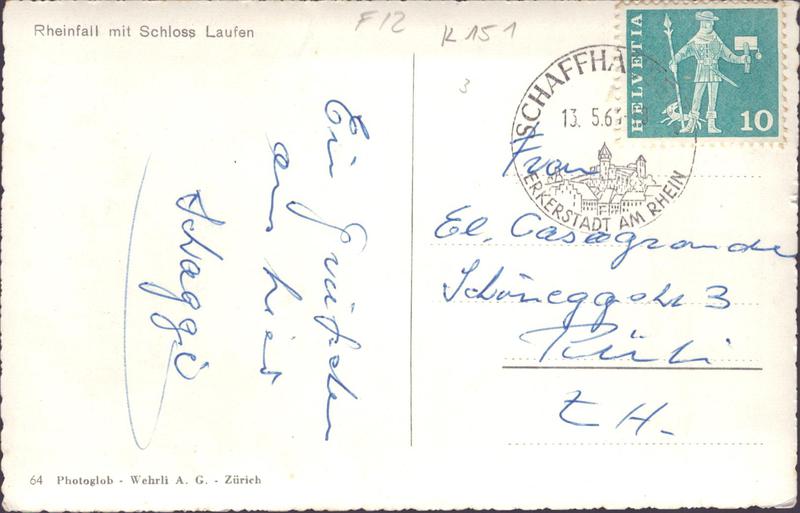 Rheinfall mit Schloss Laufen
F12
K 151
3
HELVETIA
10
SCHAFFHA
13. 5.6
ERKERSTADT AM RHEIN
Ein Grüsschen
aus hier
Frau
El. Casagrande
Schöneggstr 3
Rüti
ZH.
64 Photoglob - Wehrli A. G. - Zürich